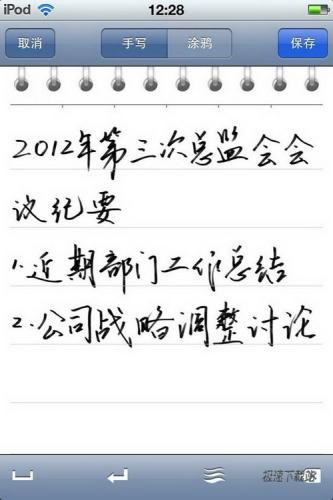 iPod 12:28
取消 手写 涂鸦 保存
2012年第三次总监会会
议纪要
1.近期部门工作总结
2.公司战略调整讨论
极速下载站